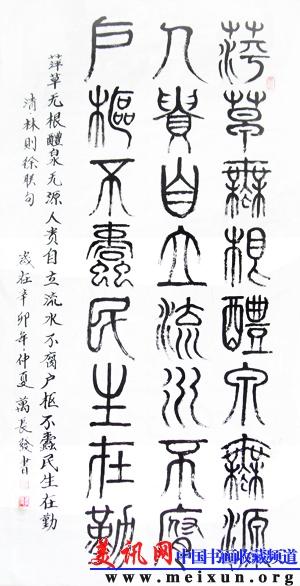 萍草無根醴泉無源
人貴自立流水不腐
户樞不蠹民生在勤
萍草无根醴泉无源人贵自立流水不腐户枢不蠹民生在勤
清林则徐联句
岁在辛卯年仲夏萬長發书
美讯网
中国书画收藏频道
www.meixun.org